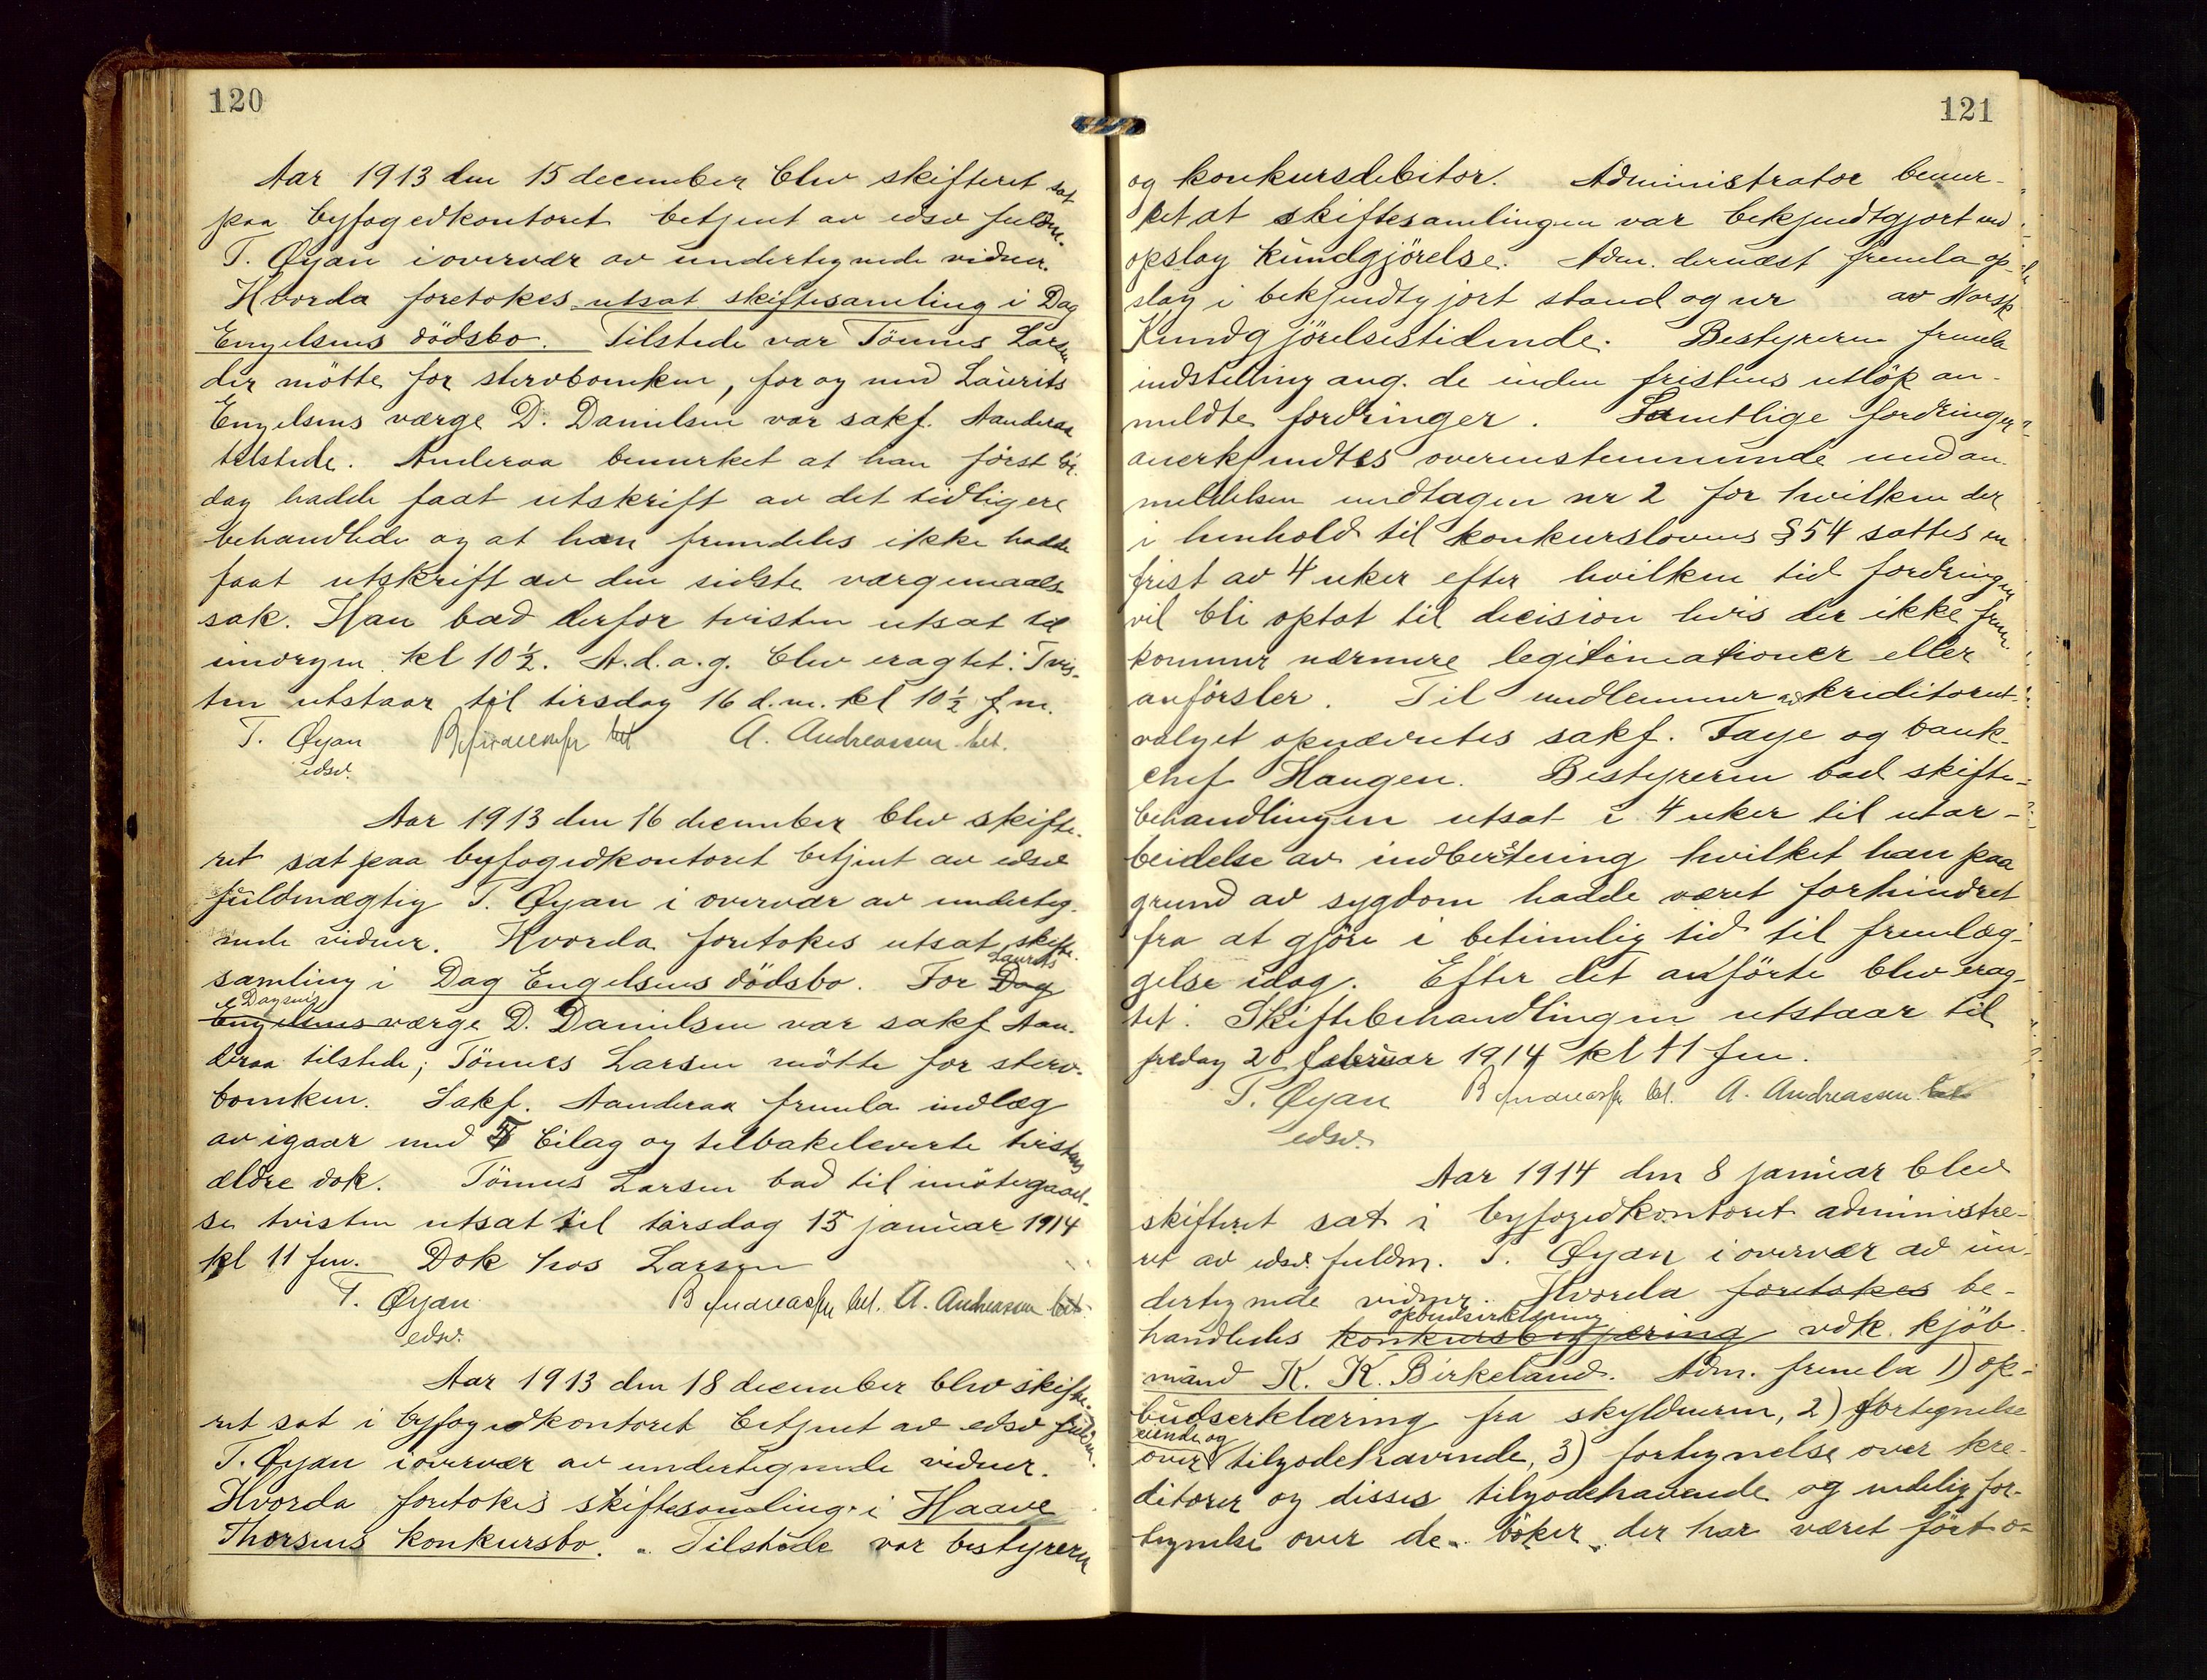 120
Aar 1913 den 15 december blev skifteret sat
paa byfogedkontoret betjent av edsv fuldm.
T. Øyan i overvær av undertegnede vidner.
Hvorda foretokes utsat skiftesamling i Dag
Engelsens dödsbo. Tilstede var Tönnes Larsen
der mötte for stervboenken, for og med Laurits
Engelsens værge D. Danielsen var sakf. Aanderaa
tilstede. Anderaa bemerket at han först i
dag hadde faat utskrift av det tidligere
behandlede og at han fremdeles ikke hadde
faat utskrift av den sidste værgemaals-
sak. Han bad derfor tvisten utsat til
imorgen kl 10½. A.d.a.g. blev eragtet: Tvis-
ten utstaar til tirsdag 16 d.m. kl 10½ fm.
T. Øyan bet A. Andreassen bet.
edsv.
Aar 1913 den 16 december blev skifte-
ret sat paa byfogedkontoret betjent av edsv
fuldmægtig T. Øyan i overvær av underteg-
nede vidner. Hvorda foretokes utsat skifte-
samling i Dag Engelsens dödsbo. For Dag Laurits
Engelsens Dagsens værge D. Danielsen var sakf. Aan-
deraa tilstede; Tönnes Larsen mötte for sterv-
boenken. Sakf. Aanderaa fremla indlæg
av igaar med 5 bilag og tilbakeleverte tvistens
ældre dok. Tönnes Larsen bad til imötegaael-
se tvisten utsat til torsdag 15 januar 1914
kl 11 fm. Dok hos Larsen
T. Øyan B Andreassen bet. A. Andreassen bet.
edsv.
Aar 1913 den 18 december blev skifte-
ret sat i byfogedkontoret betjent av edsv fuldm.
T. Øyan i overvær av undertegnede vidner.
Hvorda foretokes skiftesamling i Haave
Thorsens konkursbo. Tilstede var bestyreren
121
og konkursdebitor. Administrator bemer-
ket at skiftesamlingen var bekjendtgjort ved
opslag kundgjörelse. Adm. dernæst fremla op-
slag i bekjendtgjort stand og nr av Norsk
Kundgjörelsestidende. Bestyreren fremla
indstilling ang. de inden fristens utlöp an-
meldte fordringer. Samtlige fordringer
anerkjendtes overensstemmende med an-
meldelsen undtagen nr 2 for hvilken der
i henhold til konkurslovens § 54 sattes en
frist av 4 uker efter hvilken tid fordringen
vil bli optat til decision hvis der ikke frem-
kommer nærmere legitimationer eller
anförsler. Til medlemmer av kreditorut-
valget opnævntes sakf. Faye og bank-
chef Haugen. Bestyreren bad skifte-
behandlingen utsat i 4 uker til utar-
beidelse av indberetning hvilket han paa
grund av sygdom hadde været forhindret
fra at gjöre i betimelig tid til fremlæg-
gelse idag. Efter det anförte blev erag-
tet: Skiftebehandlingen utstaar til
fredag 20 februar 1914 kl 11 fm.
T. Øyan B Andreassen bet. A. Andreassen bet.
edsv.
Aar 1914 den 8 januar blev
skifteret sat i byfogedkontoret administre-
ret av edsv. fuldm. T. Øyan i overvær av un-
dertegnede vidner. Hvorda foretokes be-
handledes konkursbegjæring opbudserklæring vdk. kjöb-
mand K. K. Birkeland. Adm. fremla 1) op-
budserklæring fra skyldneren, 2) fortegnelse
over eiende og tilgodehavende, 3) fortegnelse over kre-
ditorer og disses tilgodehavende og endelig for-
tegnelse over de böker der har været fört o-